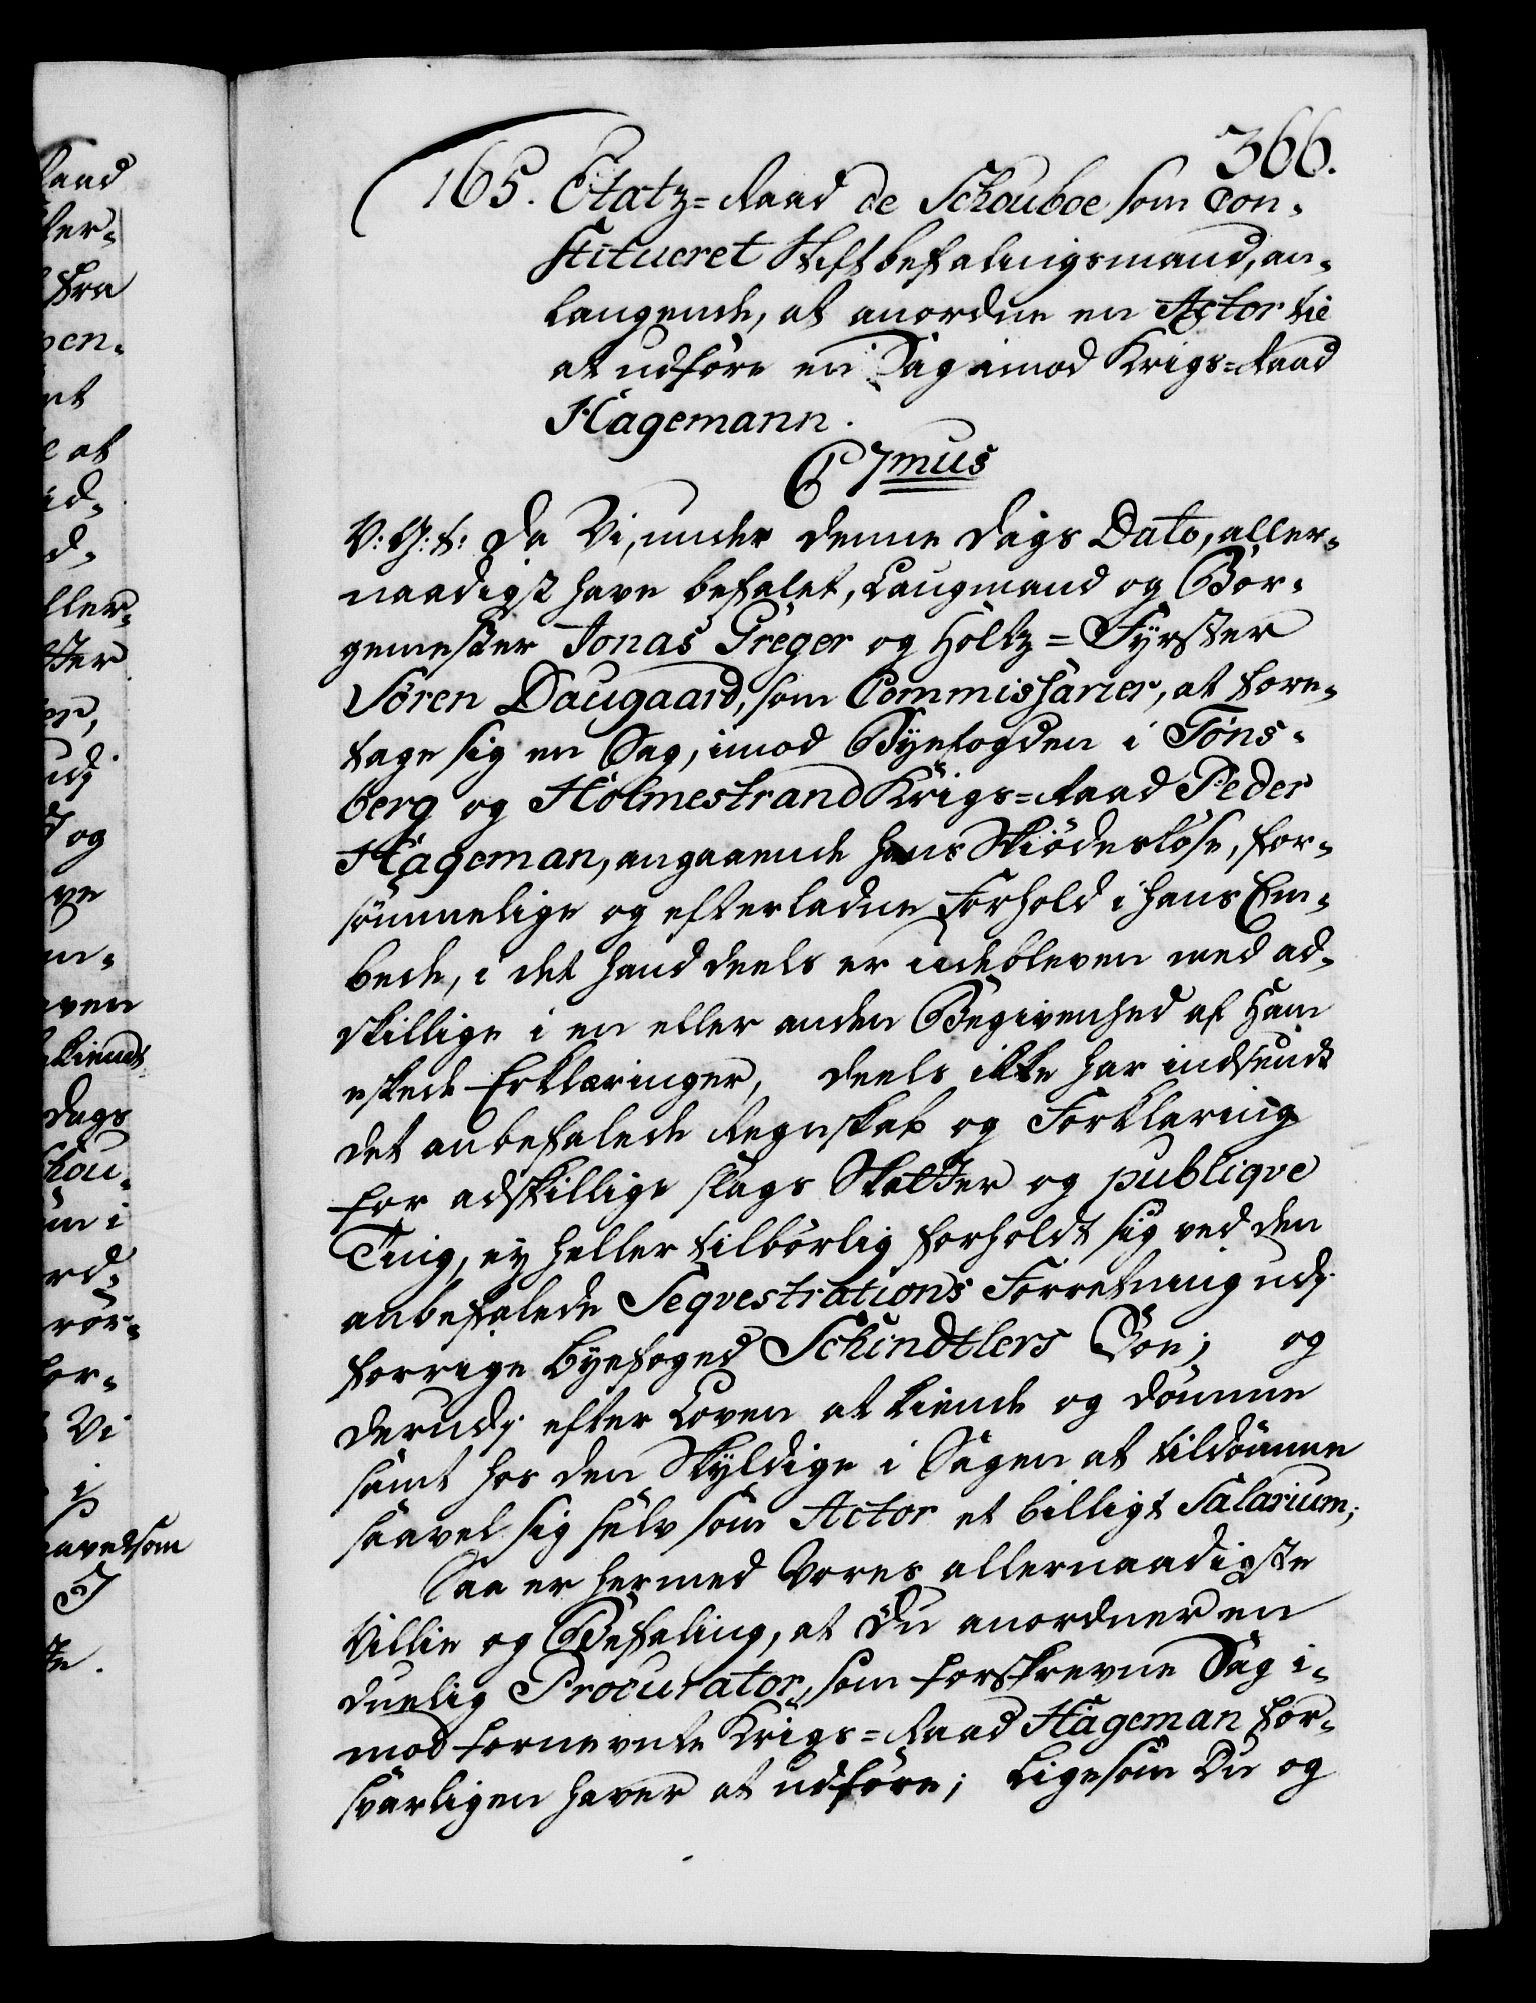 366.
165. Etatz=Raad de Schouboe som Con-
stitueret Stiftbefalingsmand, an-
langende, at anordne en Actor til
at udføre en Sag imod Krigs=Raad
Hagemann.
C 7mus
V: G: t: Da Vi, under denne Dags Dato, aller-
naadigst have befalet, Laugmand og Bor-
gemester Jonas Greger og Holtz=Fyrster
Sören Daugaard, som Commissarier, at fore-
tage sig en Sag, imod Byefogden i Töns-
berg og Holmestrand Krigs=Raad Peder
Hageman, angaaende hans Skiödesløse, for-
sømmelige og efterladne Forhold i hans Em-
bede, i det hand deels er udebleven med ad-
skillige i en eller anden Begivenhed af ham
eskede Erklæringer, deels ikke har indsendt
det anbefalede Regnskab og Forklaring
for adskillige slags Skatter og publiqve
Ting, ey heller tilbørlig forholdt sig ved den
anbefalede Seqvestrations Forretning udj
forrige Byefoged Schindtlers Boe; og
derudj efter Loven at kiende og dømme
samt hos den Skyldige i Sagen at tildømme
saavel sig selv som Actor et billigt Salarium;
Saa er hermed Vores allernaadigste
Villie og Befaling, at Du anordner en
duelig Procurator, som forskrevne Sag i-
mod fornevnte Krigs=Raad Hageman for-
svarligen haver at udføre; Ligesom Du og